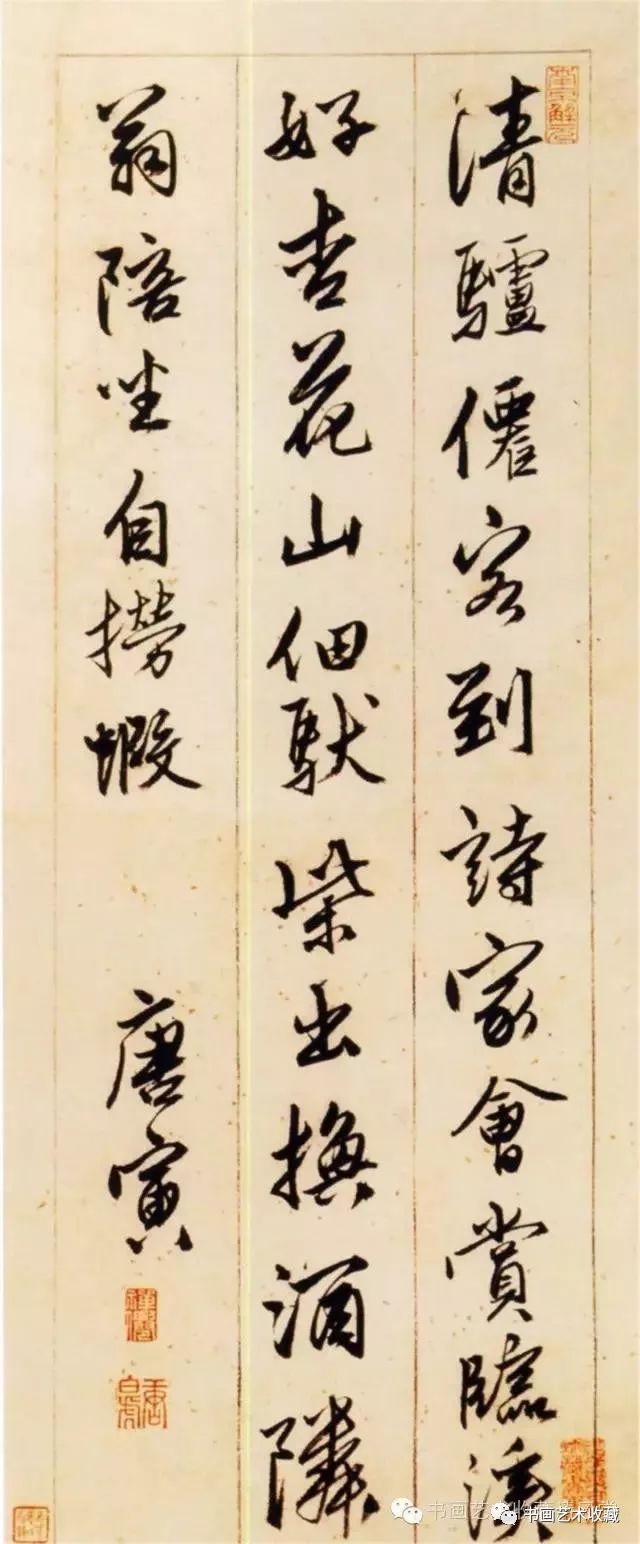 清驢僊客到詩家會賞臨溪
好杏花山佃馱柴出換酒隣
翁陪坐自撈蝦
唐寅
书画艺术收藏